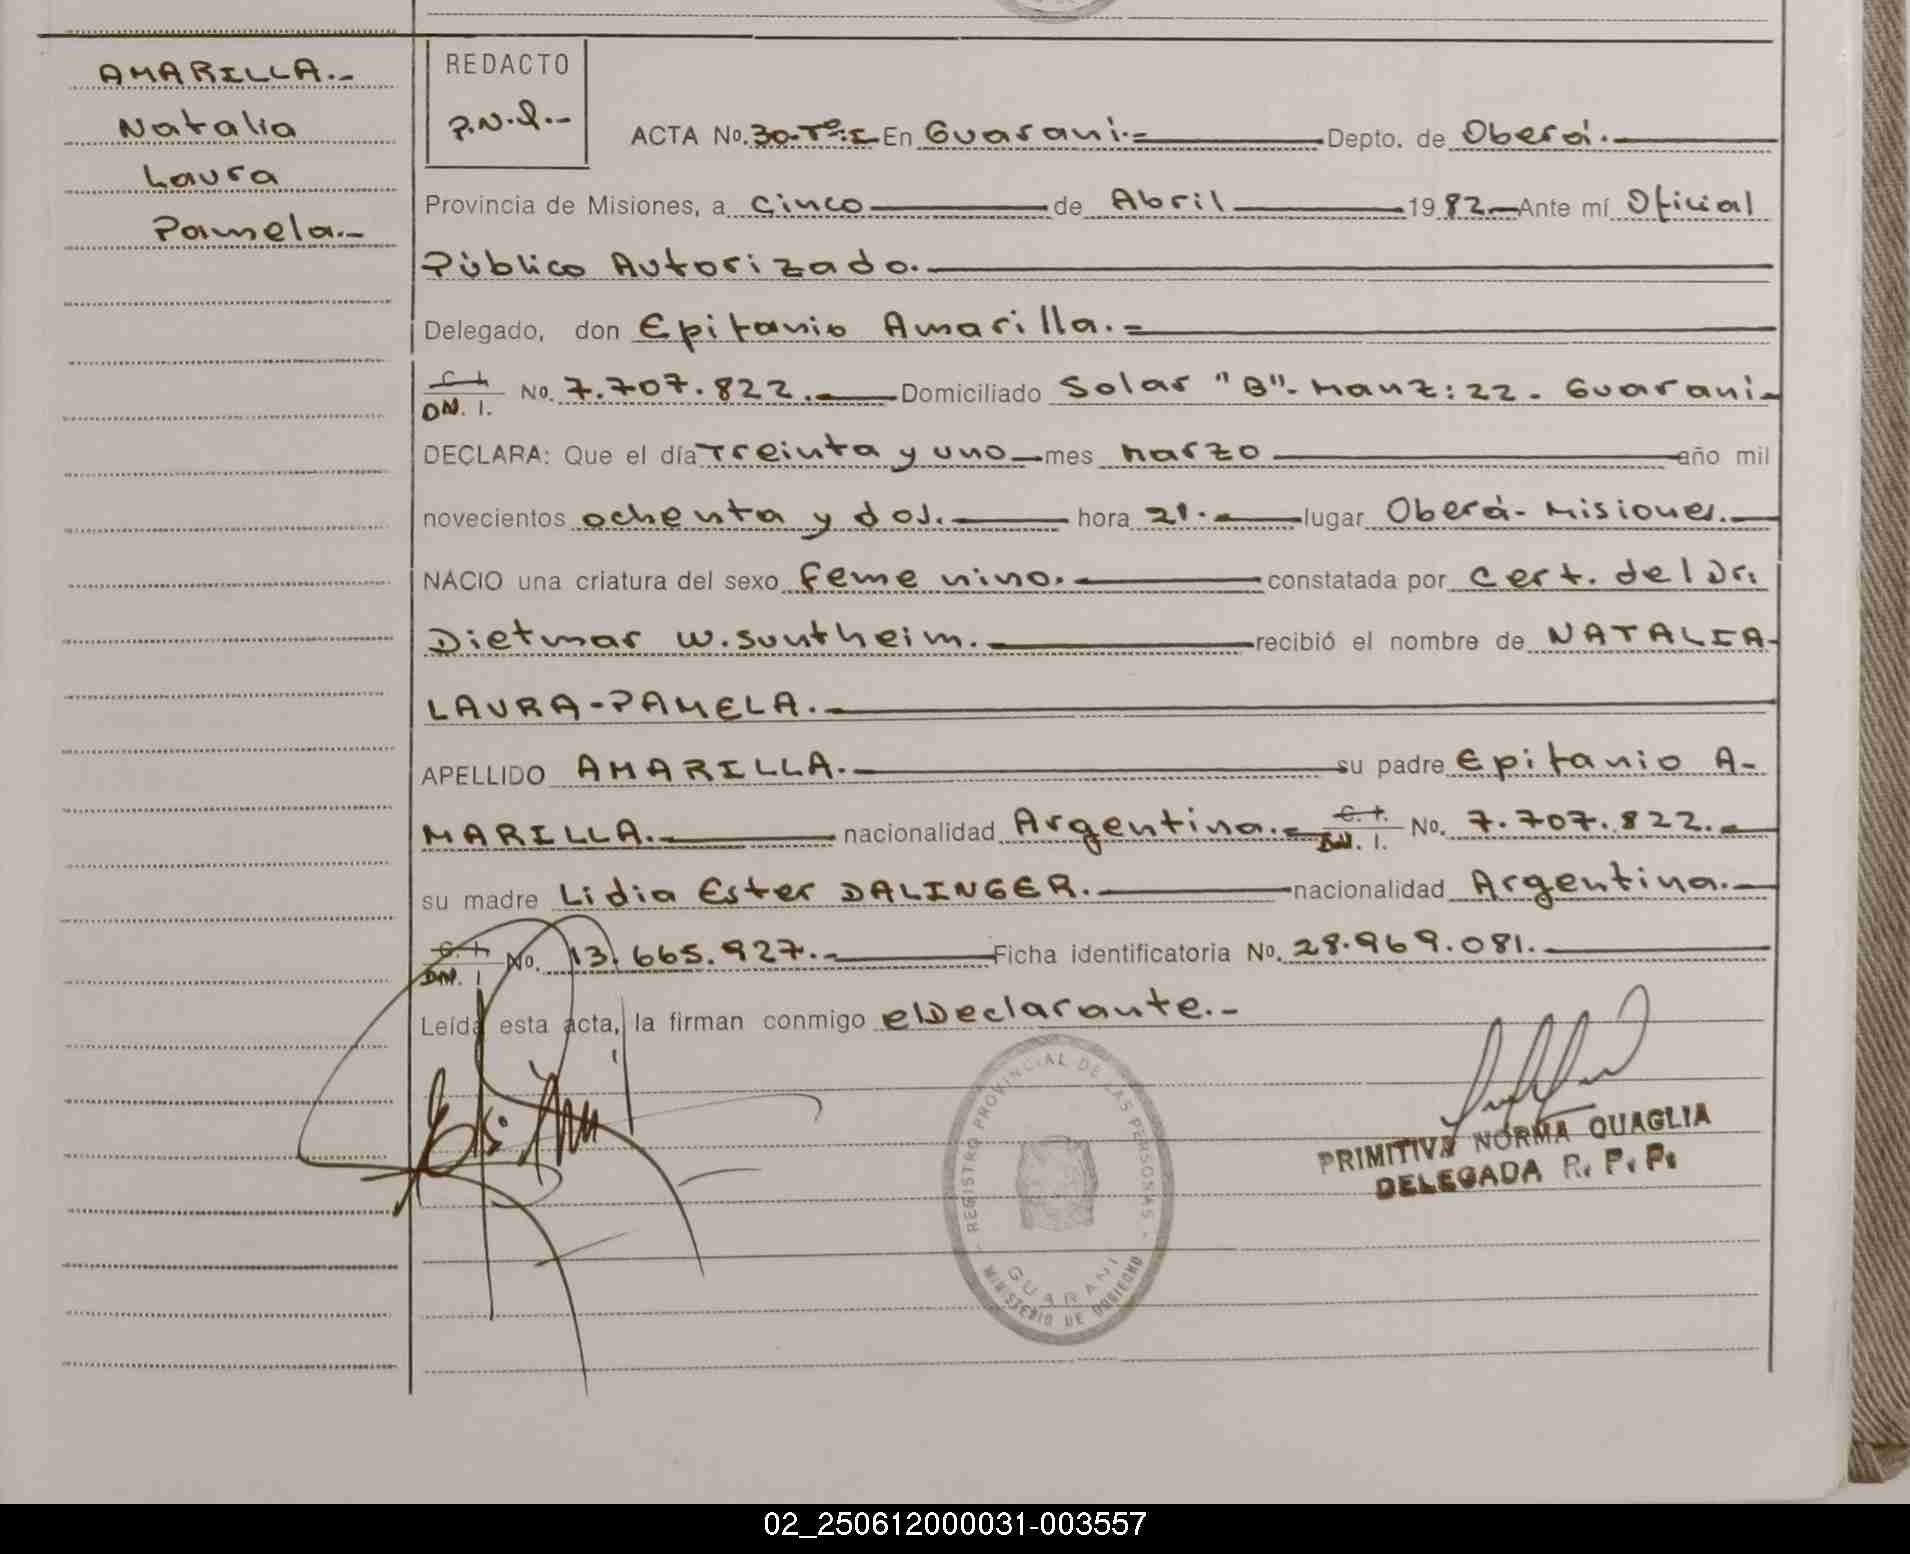 AMARILLA.-
Natalia
Laura
Pamela.-
REDACTO
P.N.Q.-
ACTA No. 30-Tº:I En Guaraní.- Depto. de Oberá.
Provincia de Misiones, a cinco de Abril 1982- Ante mí Oficial
Público Autorizado.
Delegado, don Epifanio Amarilla.-
C. I.
DN. I. No. 7.707.822.- Domiciliado Solar "B"- Manz: 22- Guaraní-
DECLARA: Que el día Treinta y uno mes Marzo año mil
novecientos ochenta y dos.- hora 21.- lugar Oberá- Misiones.-
NACIO una criatura del sexo femenino.- constatada por Cert. del Dr.
Dietmar W. Suntheim.- recibió el nombre de NATALIA-
LAURA-PAMELA.-
APELLIDO AMARILLA.- su padre Epifanio A-
MARILLA.- nacionalidad Argentina.- C. I.
DN. I. No. 7.707.822.-
su madre Lidia Ester DALINGER.- nacionalidad Argentina.-
C. I.
DN. I No. 13.665.927.- Ficha identificatoria No. 28.969.081.
Leída esta acta, la firman conmigo el Declarante.-
REGISTRO PROVINCIAL DE LAS PERSONAS
GUARANI
MINISTERIO DE GOBIERNO
PRIMITIVA NORMA QUAGLIA
DELEGADA R. P. P.
02_250612000031-003557